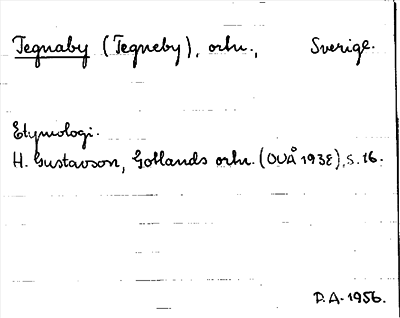 Tegnaby (Tegneby), ortn., Sverige.
Etymologi.
H. Gustavson, Gotlands ortn. (OUÅ 1938), s. 16.
D. A. 1956.